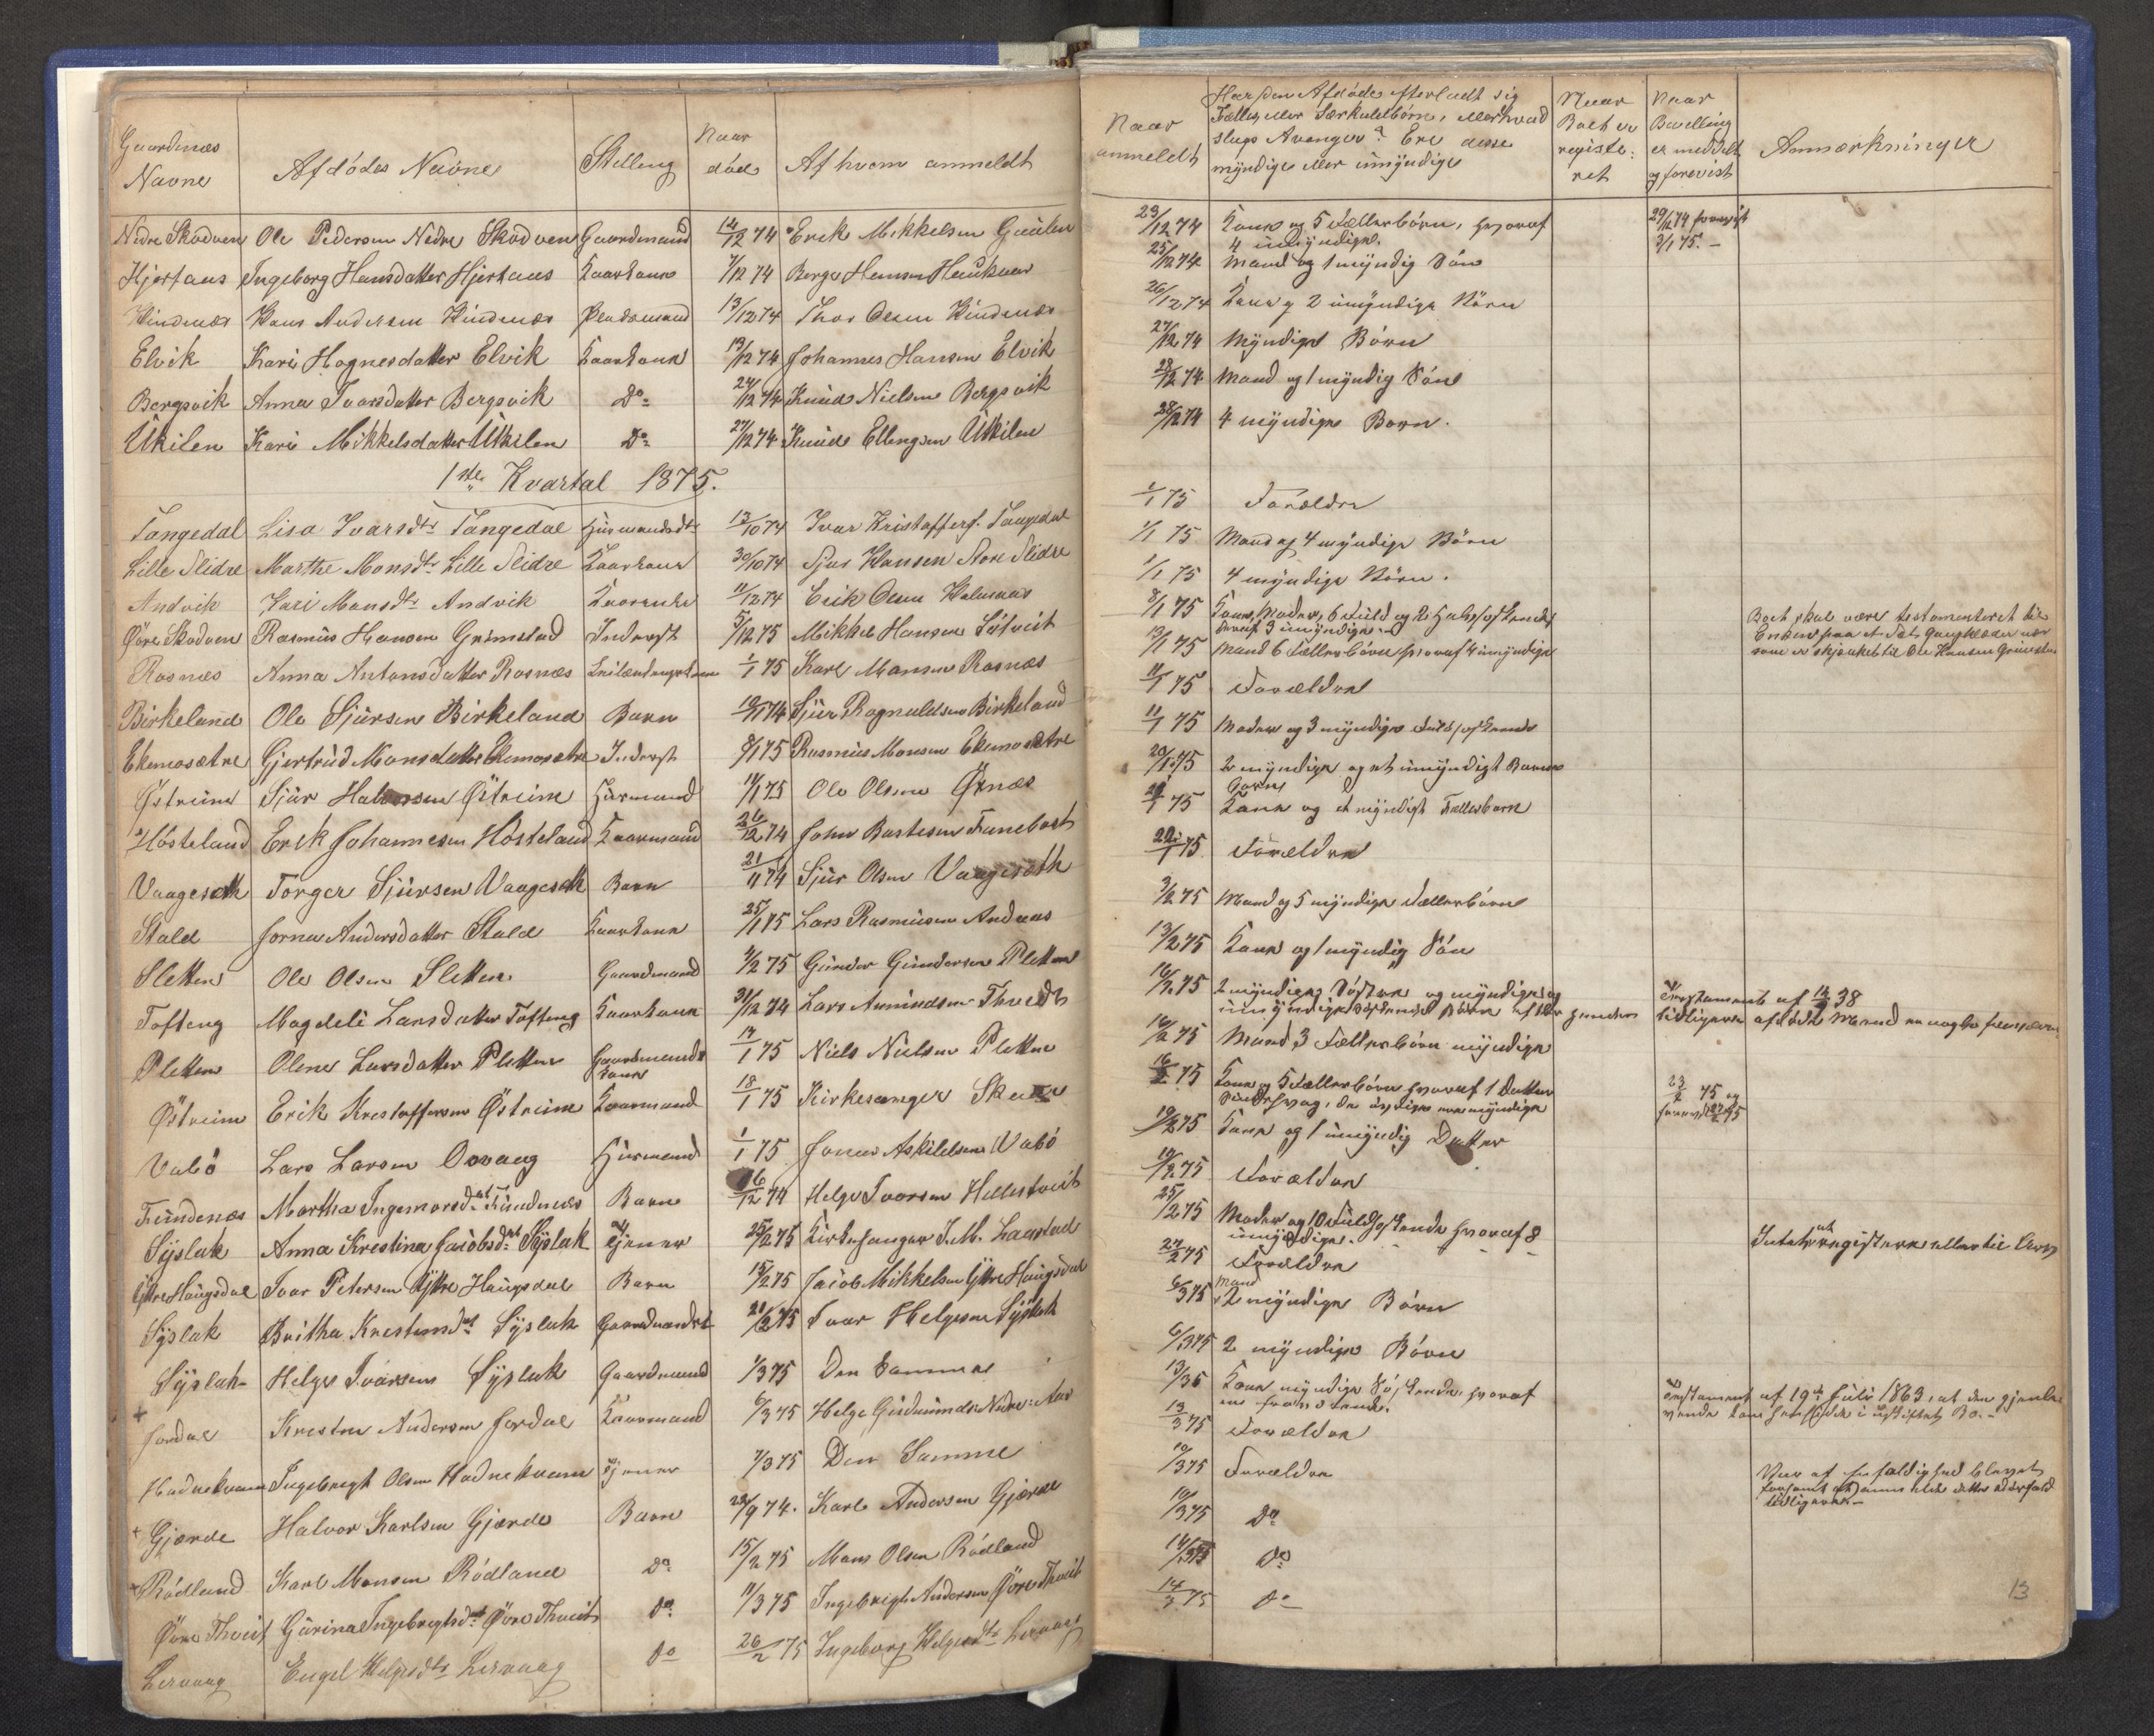 Gaardenes Navne | Afdödes Navne | Stilling | Naar död | Af hvem anmeldt
Nedre Skodven | Ole Pedersen Nedre Skodven | Gaardmand | 12/12 74 | Erik Mikkelsen Gaulen
Hjertaas | Ingeborg Hansdatter Hjertaas | Kaarkone | 7/12 74 | Berge Hansen Haukaas
Hindenæs | Hans Andersen Hindenæs | Pladsmand | 13/12 74 | Thor Olsen Hindenæs
Elvik | Kari Hognesdatter Elvik | Kaarkone | 13/12 74 | Johannes Hansen Elvik
Bergsvik | Anna Ivarsdatter Bergsvik | Do | 24/12 74 | Knud Nielsen Bergsvik
Utkilen | Kari Mikkelsdatter Utkilen | Do | 27/12 74 | Knud Ellingsen Utkilen
1ste Kvartal 1875.
Tangedal | Lisa Ivarsdtr Tangedal | Husmandsdtr | 13/10 74 | Ivar Kristoffers. Tangedal
Lille Slidre | Marthe Monsdtr Lille Slidre | Kaarkone | 30/10 74 | Sjur Hansen Store Slidre
Andvik | Kari Monsdtr Andvik | Kaarenke | 11/12 74 | Erik Olsen
Øvre Skodven | Rasmus Hansen Grimstad | Inderst | 5/12 75 | Mikkel Hansen Sötveit
Rosnes | Anna Antonsdatter Rosnæs | | 1/1 75 | Karl Monsen Rosnæs
Birkeland | Ole Sjursen Birkeland | Barn | 10/11 74 | Sjur Ragnaldsen Birkeland
Ekemosætre | Gjertrud Monsdatter Ekemosætre | Inderst | 8/1 75 | Rasmus Monsen Ekemosætre
Østreim | Sjur Halvorsen Østreim | Husmand | 11/1 75 | Ole Olsen Øxnæs
Hösteland | Erik Johannesen Hösteland | Kaarmand | 26/12 74 | John Bastesen Tunebost
Vaageseth | Torger Sjursen Vaageseth | Barn | 21/11 74 | Sjur Olsen Vaageseth
Stald | Jorna Andersdatter Stald | Kaarkone | 25/1 75 | Lars Rasmussen Andaas
Sletten | Ole Olsen Sletten | Gaardmand | 4/2 75 | Gunder Gundersen Pletten
Tofteng | Magdeli Larsdatter Tofteng | Kaarkone | 31/12 74 | Lars Amundsen Thveidt
Pletten | Oline Larsdatter Pletten | Gaardmands Kone | 17/1 75 | Niels Nielsen Pletten
Østreim | Erik Kristoffersen Østreim | Kaarmand | 18/1 75 | Kirkesanger
Vabö | Lars Larsen Vovaag | Husmand | 1/1 75 | Jonas Askildsen Vabö
Fundenæs | Martha Ingemorsdat. Fundenæs | Barn | 16/12 74 | Helge Ivarsen Hellestveit
Syslak | Anna Kristina Jacobsdat. Syslak | Tjener | 25/2 75 | Kirkesanger J. M. Laastad
Yttre Haugsdal | Ivar Petersen Yttre Haugsdal | Barn | 15/2 75 | Jacob Mikkelsen Yttre Haugsdal
Syslak | Britha Kristensdat. Syslak | | 21/2 75 | Ivar Helgesen Syslak
Syslak | Helge Ivarsen Syslak | Gaardmand | 1/3 75 | Den Samme
+ Jordal | Kristen Andersen Jordal | Kaarmand | 6/3 75 | Helge Gudmunds. Nedre-Aas
Hodnekvam | Ingebregt Olsen Hodnekvam | Tjener | 7/3 75 | Den Samme
+ Gjærde | Halvor Karlsen Gjærde | Barn | 28/9 74. | Karl Andersen Gjærde
+ Rödland | Karl Monsen Rödland | Do | 15/2 75 | Mons Olsen Rödland
Øvre Thveit | Gurina Ingebregtsdat. Øvre Thveit | Do | 11/3 75 | Ingebregt Andersen Øvre Thveit
Lervaag | Engel Helgesdtr Lervaag | Do | 26/2 75 | Ingeborg Helgesdtr Lervaag
Naar anmeldt | Har den Afdöde efterladt sig Fælles eller Særkuldsbörn, eller hvad slags Arvinger? Ere disse myndige eller umyndige | Naar Boet er registeret | Naar Bevilling er meddelt og forevist | Anmærkninger
23/12 74 | Kone og 5 Fællesbörn, hvoraf 4 umyndige. | 29/12 74 forevist 3/1 75.-
25/12 74 | Mand og 1 myndig Sön
26/12 74 | Kone og 2 umyndige Börn
27/12 74 | Myndige Börn
28/12 74 | Mand og 1 myndig Sön
28/12 74 | 4 myndige Born.
1/1 75 | Forældre
1/1 75 | Mand og 4 myndige Börn
1/1 75 | 4 myndige Börn.
8/1 75 | Kone, Moder, 6 Fuld og 2 Halvsøskende deraf 3 umyndige. | Boet skal være testamenteret til Enken paa et Sæt Gangklæder nær som er skjænket til Ole Hansen Grimstad
13/1 75 | Mand 6 Fællesbörn hvoraf 4 umyndige
11/1 75 | Forældre
11/1 75 | Moder og 3 myndige Fuldsøskende
20/1 75 | 2 myndige og et umyndigt Barn
21/1 75 | Kone og et myndigt Fællesbarn
22/1 75 | Forældre
3/2 75 | Mand og 5 myndige Fællesbörn
13/2 75 | Kone og 1 myndig Sön
16/2 75 | 2 myndige Söstre og myndige og umyndige Söskende Börn efter | Testament af 14/9 38 tidligere afdöde Mand
16/2 75 | Mand 3 Fællesbörn myndige
16/2 75 | Kone og 5 Fællesbörn hvoraf 1 Datter sindssvag, de övrige ere myndige | 23/2 75 og
19/2 75 | Kone og 1 umyndig Datter
19/2 75 | Forældre
25/2 75 | Moder og 10 Fuldsøskende hvoraf 8 umyndige. | Intet at registrere eller til Arv
27/2 75 | Forældre
6/3 75 | Mand 2 myndige Börn
6/3 75 | 2 myndige Börn
13/3 75 | Kone myndige Söskende, hvoraf | Testament af 19de Juli 1863, at den gjenlevende kan hensidde i uskiftet Bo.-
13/3 75 | Forældre
10/3 75 | Forældre
10/3 75 | Do
14/3 75 | Do
14/3 75 | Do
13